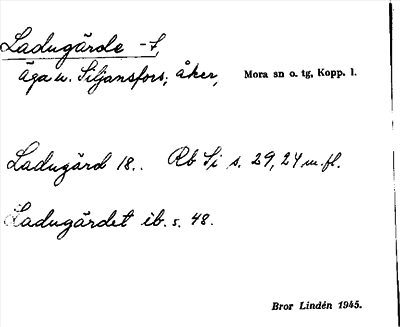 Ladugärde -7,
äga u. Siljansfors; åker, Mora sn o. tg, Kopp. l.
Ladugård 18.. Rb Si s. 29, 24 m.fl.
Ladugärdet ib. s. 48.
Bror Lindén 1945.